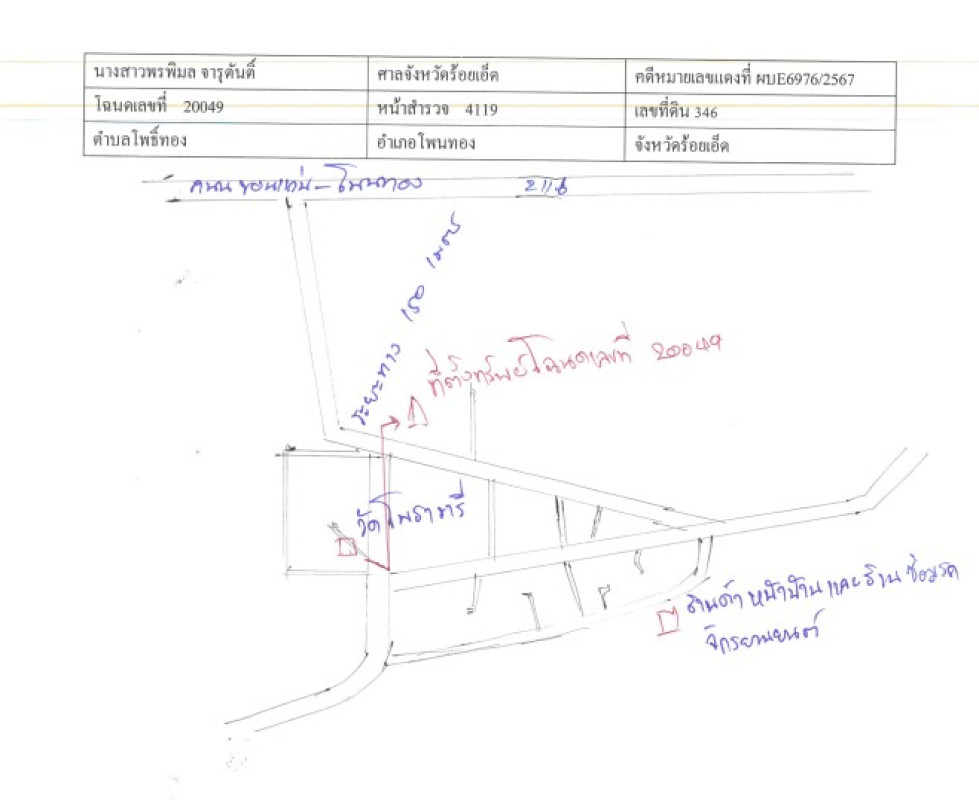 นางสาวพรพิมล จารุตันติ์ ศาลจังหวัดร้อยเอ็ด คดีหมายเลขแดงที่ ผบE6976/2567
โฉนดเลขที่ 20049 หน้าสำรวจ 4119 เลขที่ดิน 346
ตำบลโพธิ์ทอง อำเภอโพนทอง จังหวัดร้อยเอ็ด
ถนน ขอนแก่น - โพนทอง 2116
ระยะทาง 150 เมตร
ที่ตั้งทรัพย์โฉนดเลขที่ 20049
วัดโพธาทรี
ร้านค้า หน้าบ้าน และร้าน ซ่อมรถ
จักรยานยนต์